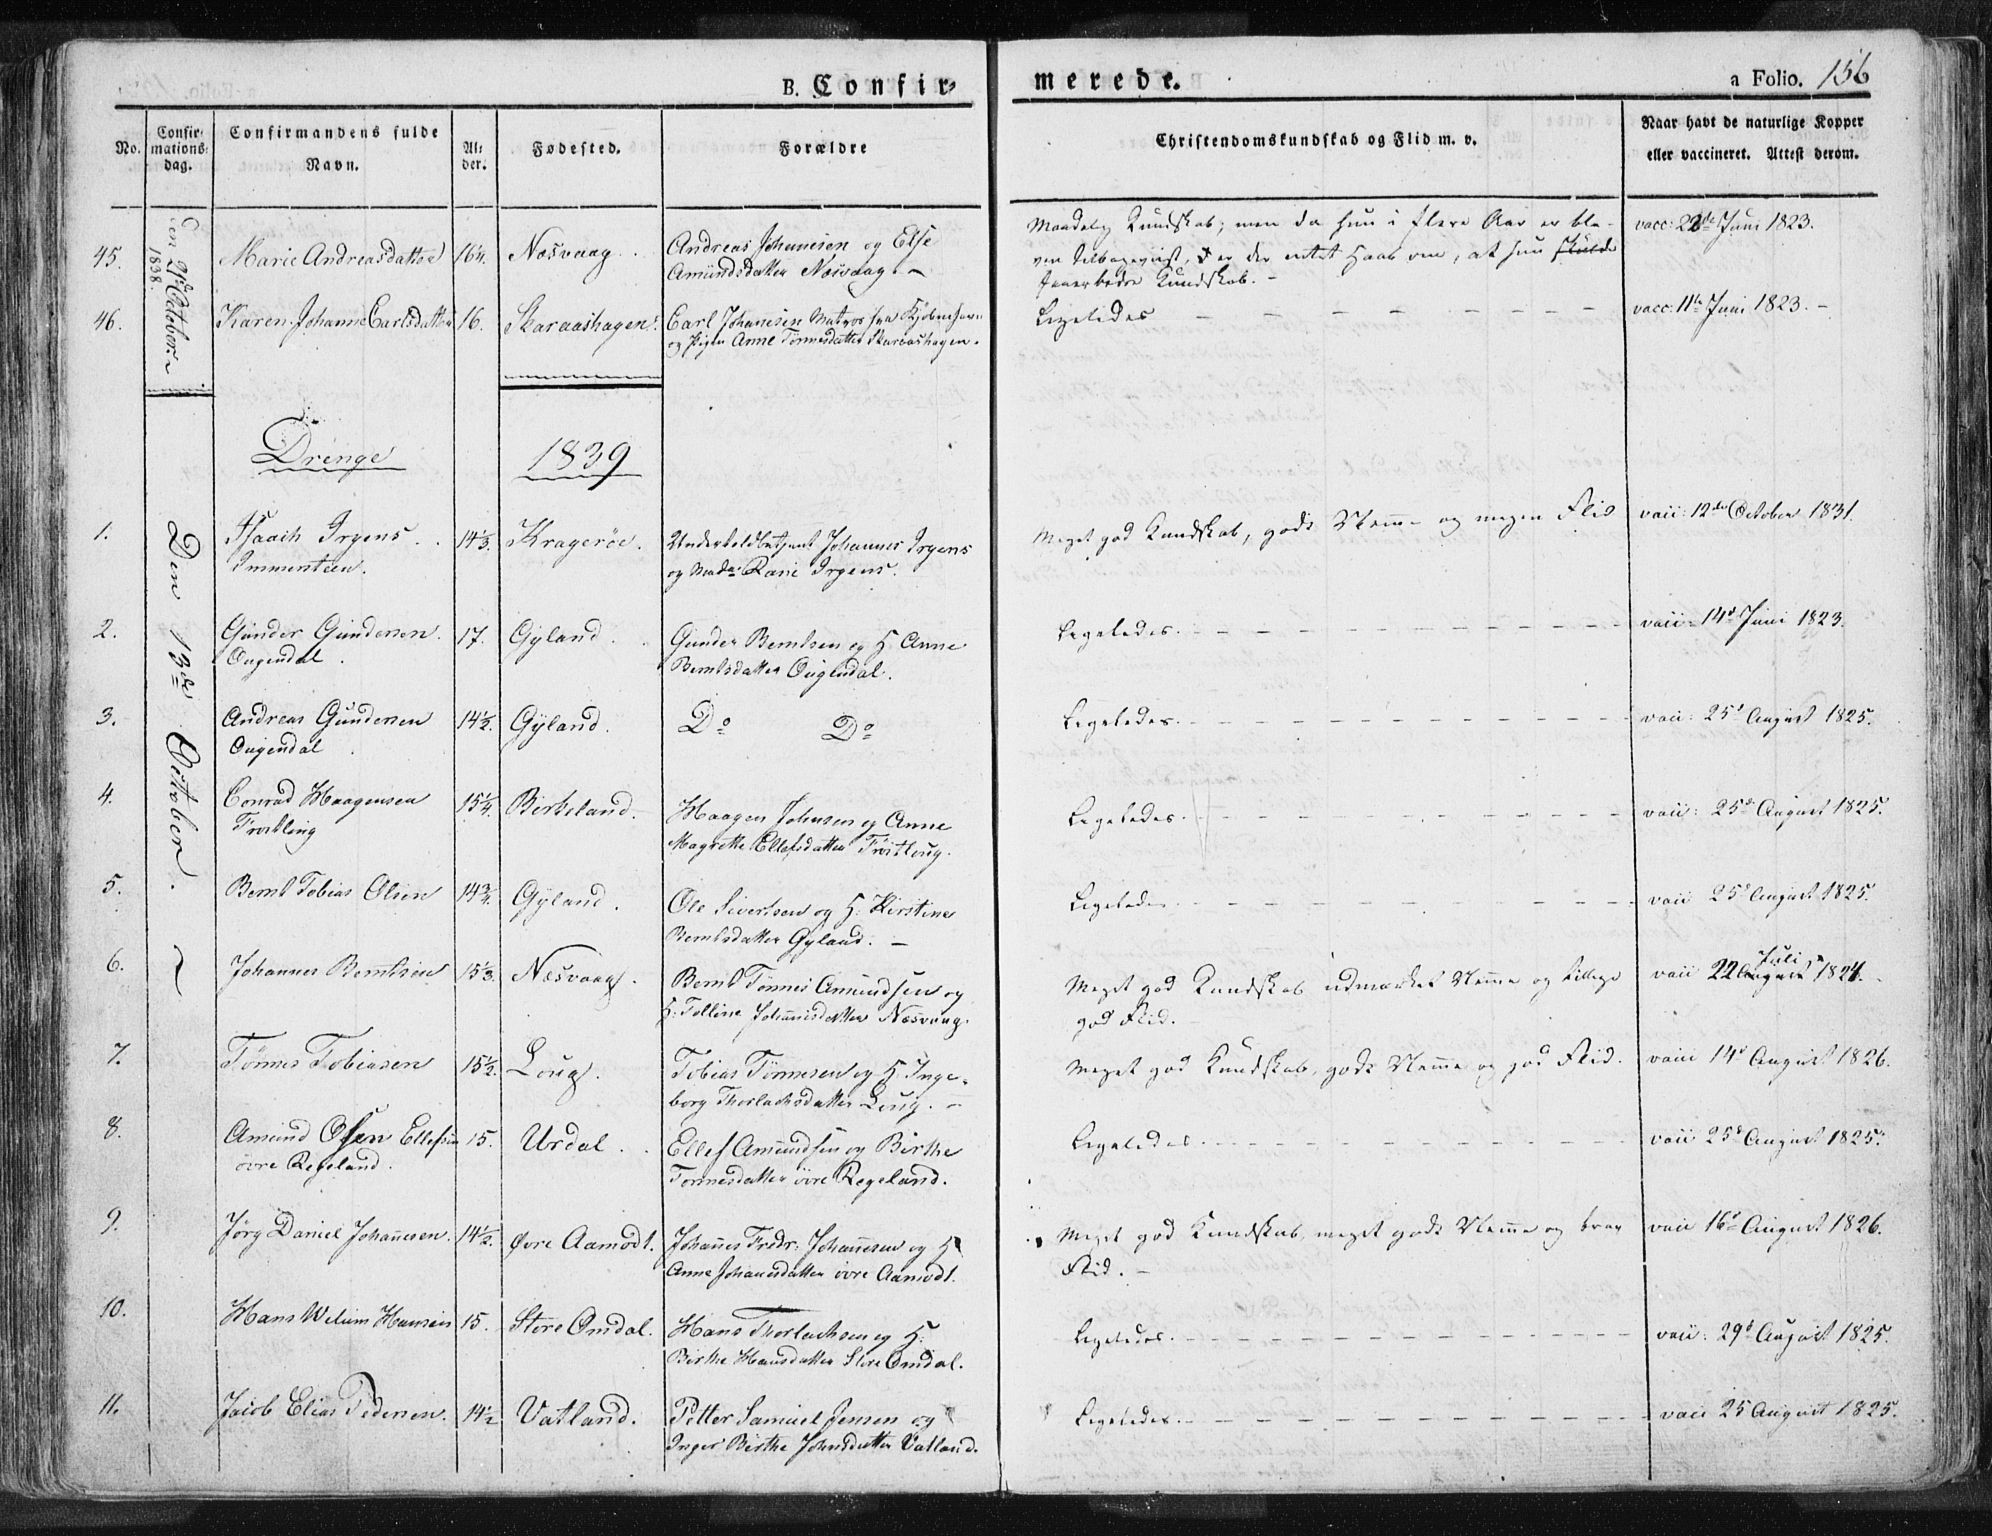 B. Confir-
merede.
a Folio. 156
No.
Confir-
mations-
dag.
Confirmandens fulde
Navn.
Al-
der.
Fødested.
Forældre
Christendomskundskab og Flid m. v.
Naar havt de naturlige Kopper
eller vaccineret. Attest derom.
Den 21de October
1838.
45. Marie Andreasdatter 16¼. Næsvaag. Andreas Johanesen og Else
Amundsdatter Næsvaag. –
Maadelig Kundskab; men da hun i flere Aar er ble-
ven tilbageviist, er der intet Haab om, at hun skulde
faaer bedre Kundskab. –
vacc: 22de Juni 1823.
46. Karen Johanne Carlsdatter 16. Skaraashagen. Carl Johanesen Matros fra Kjøbenhavn
og Pigen Anne Tönnesdatter Skaraashagen.
Ligeledes – – – – – –
vacc: 11te Juni 1823. –
Drenge
1839
Den 13de October. ~
1. Isaach Irgens 14⅓. Kragerøe. Underholdbetjent Johannes Irgens
Immenteen. og Mada: Irgens.
Meget god Kundskab, godt Nemme og megen Flid
vacc: 12te October 1831.
2. Gunder Gundersen 17. Gyland. Gunder Berntsen og H. Anne
Ougendal. Berntsdatter Ougendal.
Ligeledes. – – – – – –
vacc: 14d Juni 1823.
3. Andreas Gundersen 14½. Gyland. Do Do
Ougendal
Ligeledes. – – – – – –
vacc: 25d August 1825.
4. Conrad Haagensen 15¼. Birkeland. Haagen Johnsen og Anne
Frøitling Magrethe Ellefsdatter Frøitling.
Ligeledes. – – – – – –
vacc: 25d August 1825.
5. Bernt Tobias Olsen 14¾. Gyland. Ole Sivertsen og H: Kirstine
Berntsdatter Gyland. –
Ligeledes – – – – – –
vacc 25d August 1825.
6. Johannes Berntsen 15⅓. Næsvaag. Bernt Tønnes Amundsen og
H: Talline Johannisdatter Næsvaag.
Meget god Kundskab udmærket Nemme og tillige
god Flid.
Juli
vacc 22 August 1824.
7. Tønnes Tobiasen 15½. Loug. Tobias Tönnesen og H. Inge-
borg Thorlachsdatter Loug. –
Meget god Kundskab, godt Nemme og god Flid.
vacc 14d August 1826.
8. Amund Olsen Ellefsen 15. Urdal. Ellef Amundsen og Birthe
övre Regeland. Tonnesdatter övre Regeland.
Ligeledes – – – – – –
vacc 25d August 1825.
9. Jörg Daniel Johannesen. 14½. Øvre Aamodt. Johannes Fredr: Johannesen og H
Anne Johannesdatter övre Aamodt.
Meget god Kundskab, meget godt Nemme og brav
Flid. –
vacc 16d August 1826.
10. Hans Welum Hansen 15. Store Omdal. Hans Thorlachsen og H:
Birthe Hansdatter Store Omdal.
Ligeledes. – – – – – –
vacc: 29d August 1825.
11. Jacob Elias Pedersen. 14½ Vatland. Petter Samuel Jensen og
Inger Birthe Johnsdatter Vatland.
Ligeledes. – – – – – –
vacc 25 August 1825.